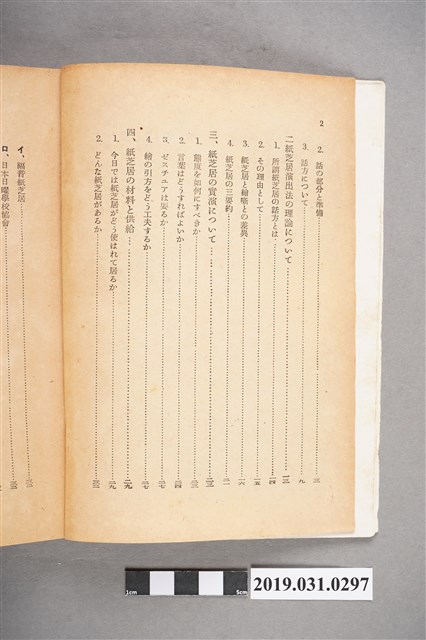 2
2. 話の部分と準備
3. 話方について………九
二 紙芝居演出法の理論について………一三
1. 所謂紙芝居の話方とは………一四
2. その理由として………一五
3. 紙芝居と繪噺との差異………一六
4. 紙芝居の三要約
三、紙芝居の實演について………二三
1. 態度を如何にすべきか
2. 言葉はどうすればよいか………二四
3. ゼスチュアは要るか………二七
4. 繪の引方をどう工夫するか………二七
四、紙芝居の材料と供給………二九
1. 今日では紙芝居がどう使はれて居るか………二九
2. どんな紙芝居があるか
イ、福音紙芝居
ロ、日本日曜學校協會
1cm
5cm
2019.031.0297